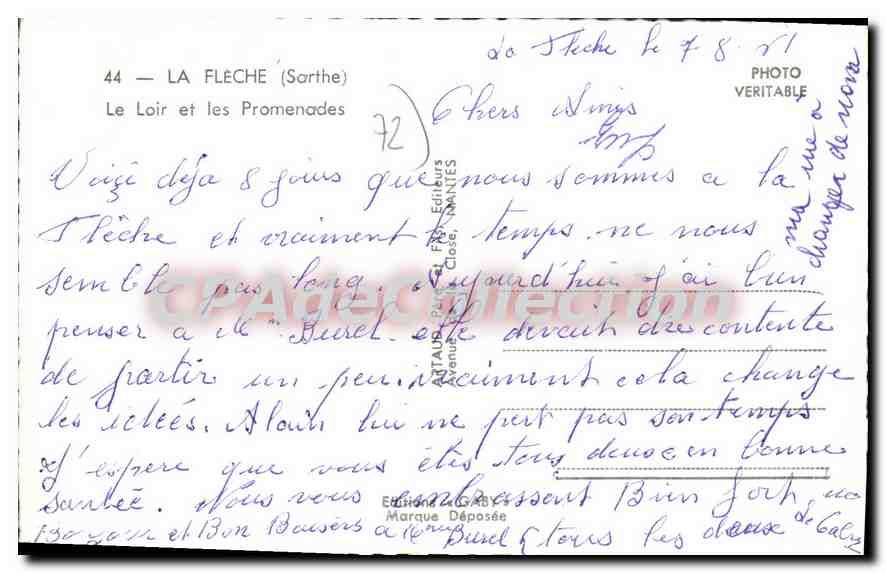 La Flèche le 7.8.51
44 — LA FLÈCHE (Sarthe)
Le Loir et les Promenades
PHOTO
VERITABLE
72
Chers Amis
Voiçi déja 8 jours que nous sommes a la
Flêche et vraiment le temps ne nous
semble pas long. Aujourd'hui j'ai bien
penser a Mme Burel elle devait être contente
de partir un peu, vraiment cela change
les idées. Alain lui ne pert pas son temps
J'espere que vous êtes tous deux en bonne
santée. Nous vous embrassent Bien fort,
Bonjour et Bon Baisers a Mme Burel tous les deux
ma vue a
changer de nova
ARTAUD Père et Fils Editeurs
Avenue Close, NANTES
CPADeCollection
Editions "GABY"
Marque Déposée